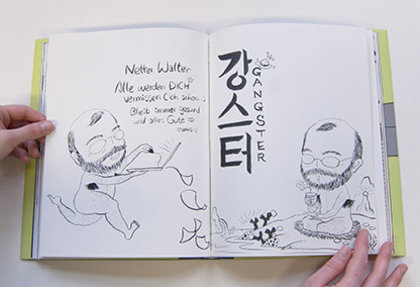 Netter Walter
Alle werden DICH
vermissen (ich schon...)
Bleib immer gesund
und alles Gute :D
강스터
GANGSTER